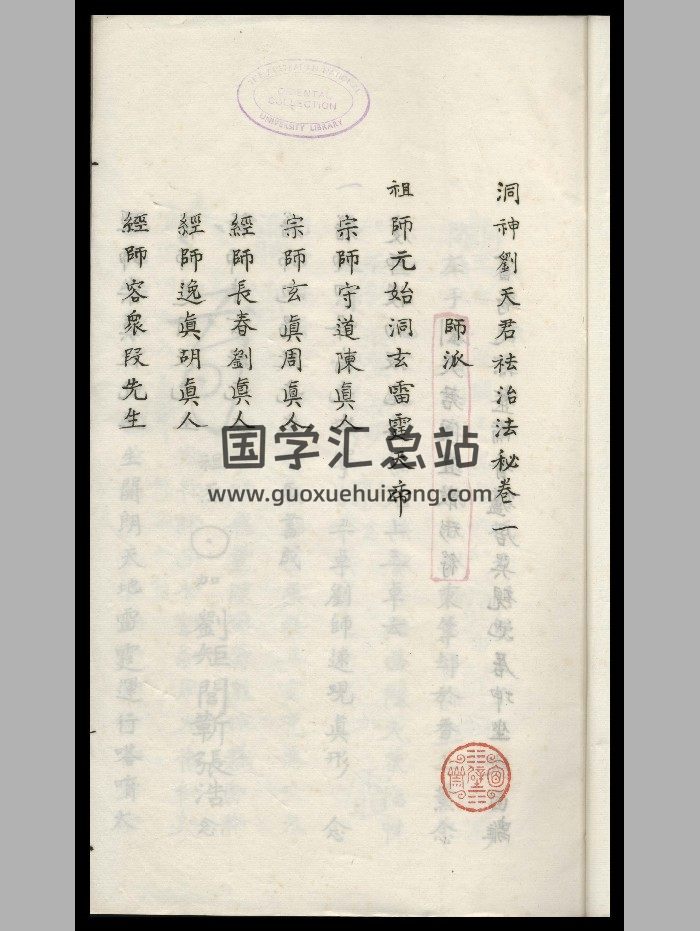 洞神劉天君祛治法秘卷一
師派
祖師元始洞玄雷霆天帝
宗師守道陳眞人
宗師玄眞周眞人
經師長春劉眞人
經師逸眞胡眞人
經師容衆段先生
ORIENTAL
COLLECTION
UNIVERSITY LIBRARY
国学汇总站
www.guoxuehuizong.com